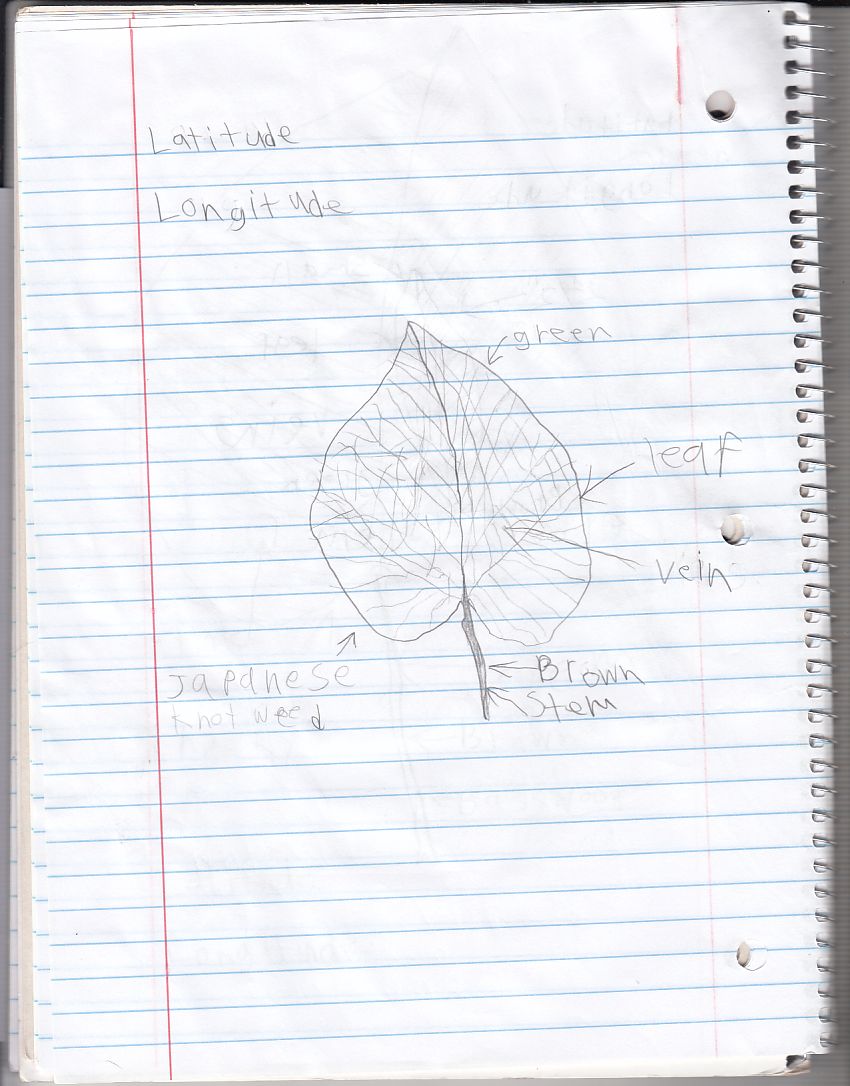 Latitude
Longitude
green
leaf
vein
Japanese
knot weed
Brown
Stem